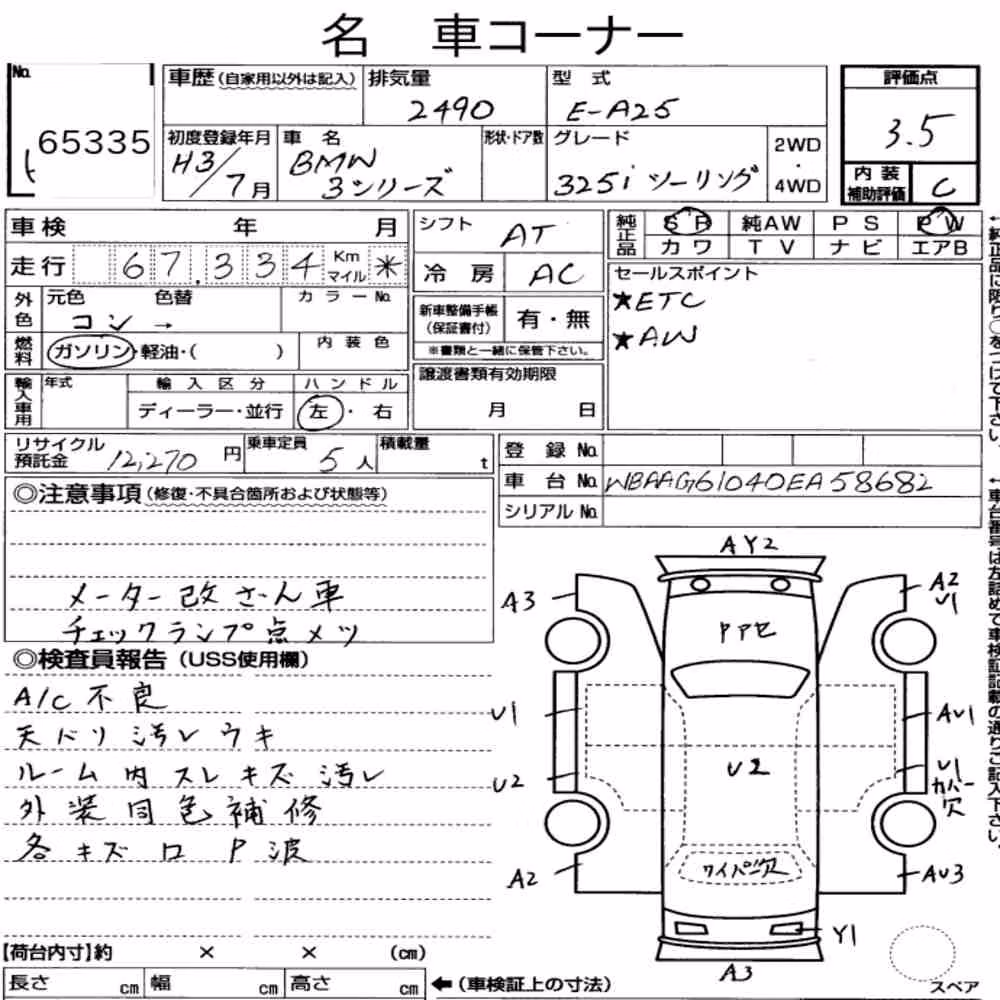 名 車コーナー
No.
65335
車歴 (自家用以外は記入)
排気量
2490
型 式
E-A25
評価点
3.5
初度登録年月
H3/7月
車 名
BMW
3シリーズ
形状・ドア数
グレード
325i ツーリング
2WD
・
4WD
内 装
補助評価
C
車検 年 月
シフト
AT
純正品
SR 純AW PS PW
カワ TV ナビ エアB
走行 67,334 Km マイル *
冷 房
AC
セールスポイント
★ETC
★AW
外色
元色 色替
コン →
カラーNo.
新車整備手帳
(保証書付)
有・無
※書類と一緒に保管下さい。
燃料
ガソリン・軽油・( )
内 装 色
輸入車用
年式
輸 入 区 分
ディーラー・並行
ハ ン ド ル
左・右
譲渡書類有効期限
月 日
リサイクル
預託金
12,270 円
乗車定員
5人
積載量
t
登 録 No.
車 台 No. WBAAG61040EA58682
シリアル No.
◎注意事項 (修復・不具合箇所および状態等)
メーター改ざん車
チェックランプ点メツ
◎検査員報告 (USS使用欄)
A/C不良
天バリ汚レウキ
ルーム内スレキズ汚レ
外装同色補修
各キズロP波
AY2
A3
A2
U1
PPセ
U1
AU1
U2
U2
U1
カバー
欠
ワイパー欠
A2
AU3
Y1
A3
スペア
【荷台内寸】約 × × (cm)
長さ cm 幅 cm 高さ cm
←(車検証上の寸法)
←純正品に限り○をつけて下さい。
←車台番号は左詰めで車検証記載の通りご記入下さい。